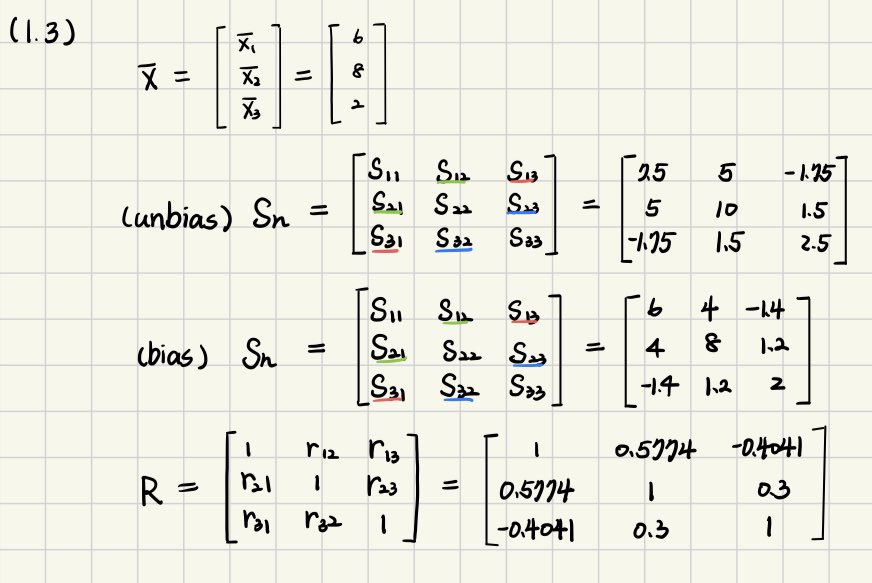 (1.3)
x̄ = [ x̄₁ x̄₂ x̄₃ ] = [ 6 8 2 ]
(unbias) Sn = [ S₁₁ S₁₂ S₁₃ ; S₂₁ S₂₂ S₂₃ ; S₃₁ S₃₂ S₃₃ ] = [ 7.5 5 -1.75 ; 5 10 1.5 ; -1.75 1.5 2.5 ]
(bias) Sn = [ S₁₁ S₁₂ S₁₃ ; S₂₁ S₂₂ S₂₃ ; S₃₁ S₃₂ S₃₃ ] = [ 6 4 -1.4 ; 4 8 1.2 ; -1.4 1.2 2 ]
R = [ 1 r₁₂ r₁₃ ; r₂₁ 1 r₂₃ ; r₃₁ r₃₂ 1 ] = [ 1 0.5774 -0.4041 ; 0.5774 1 0.3 ; -0.4041 0.3 1 ]